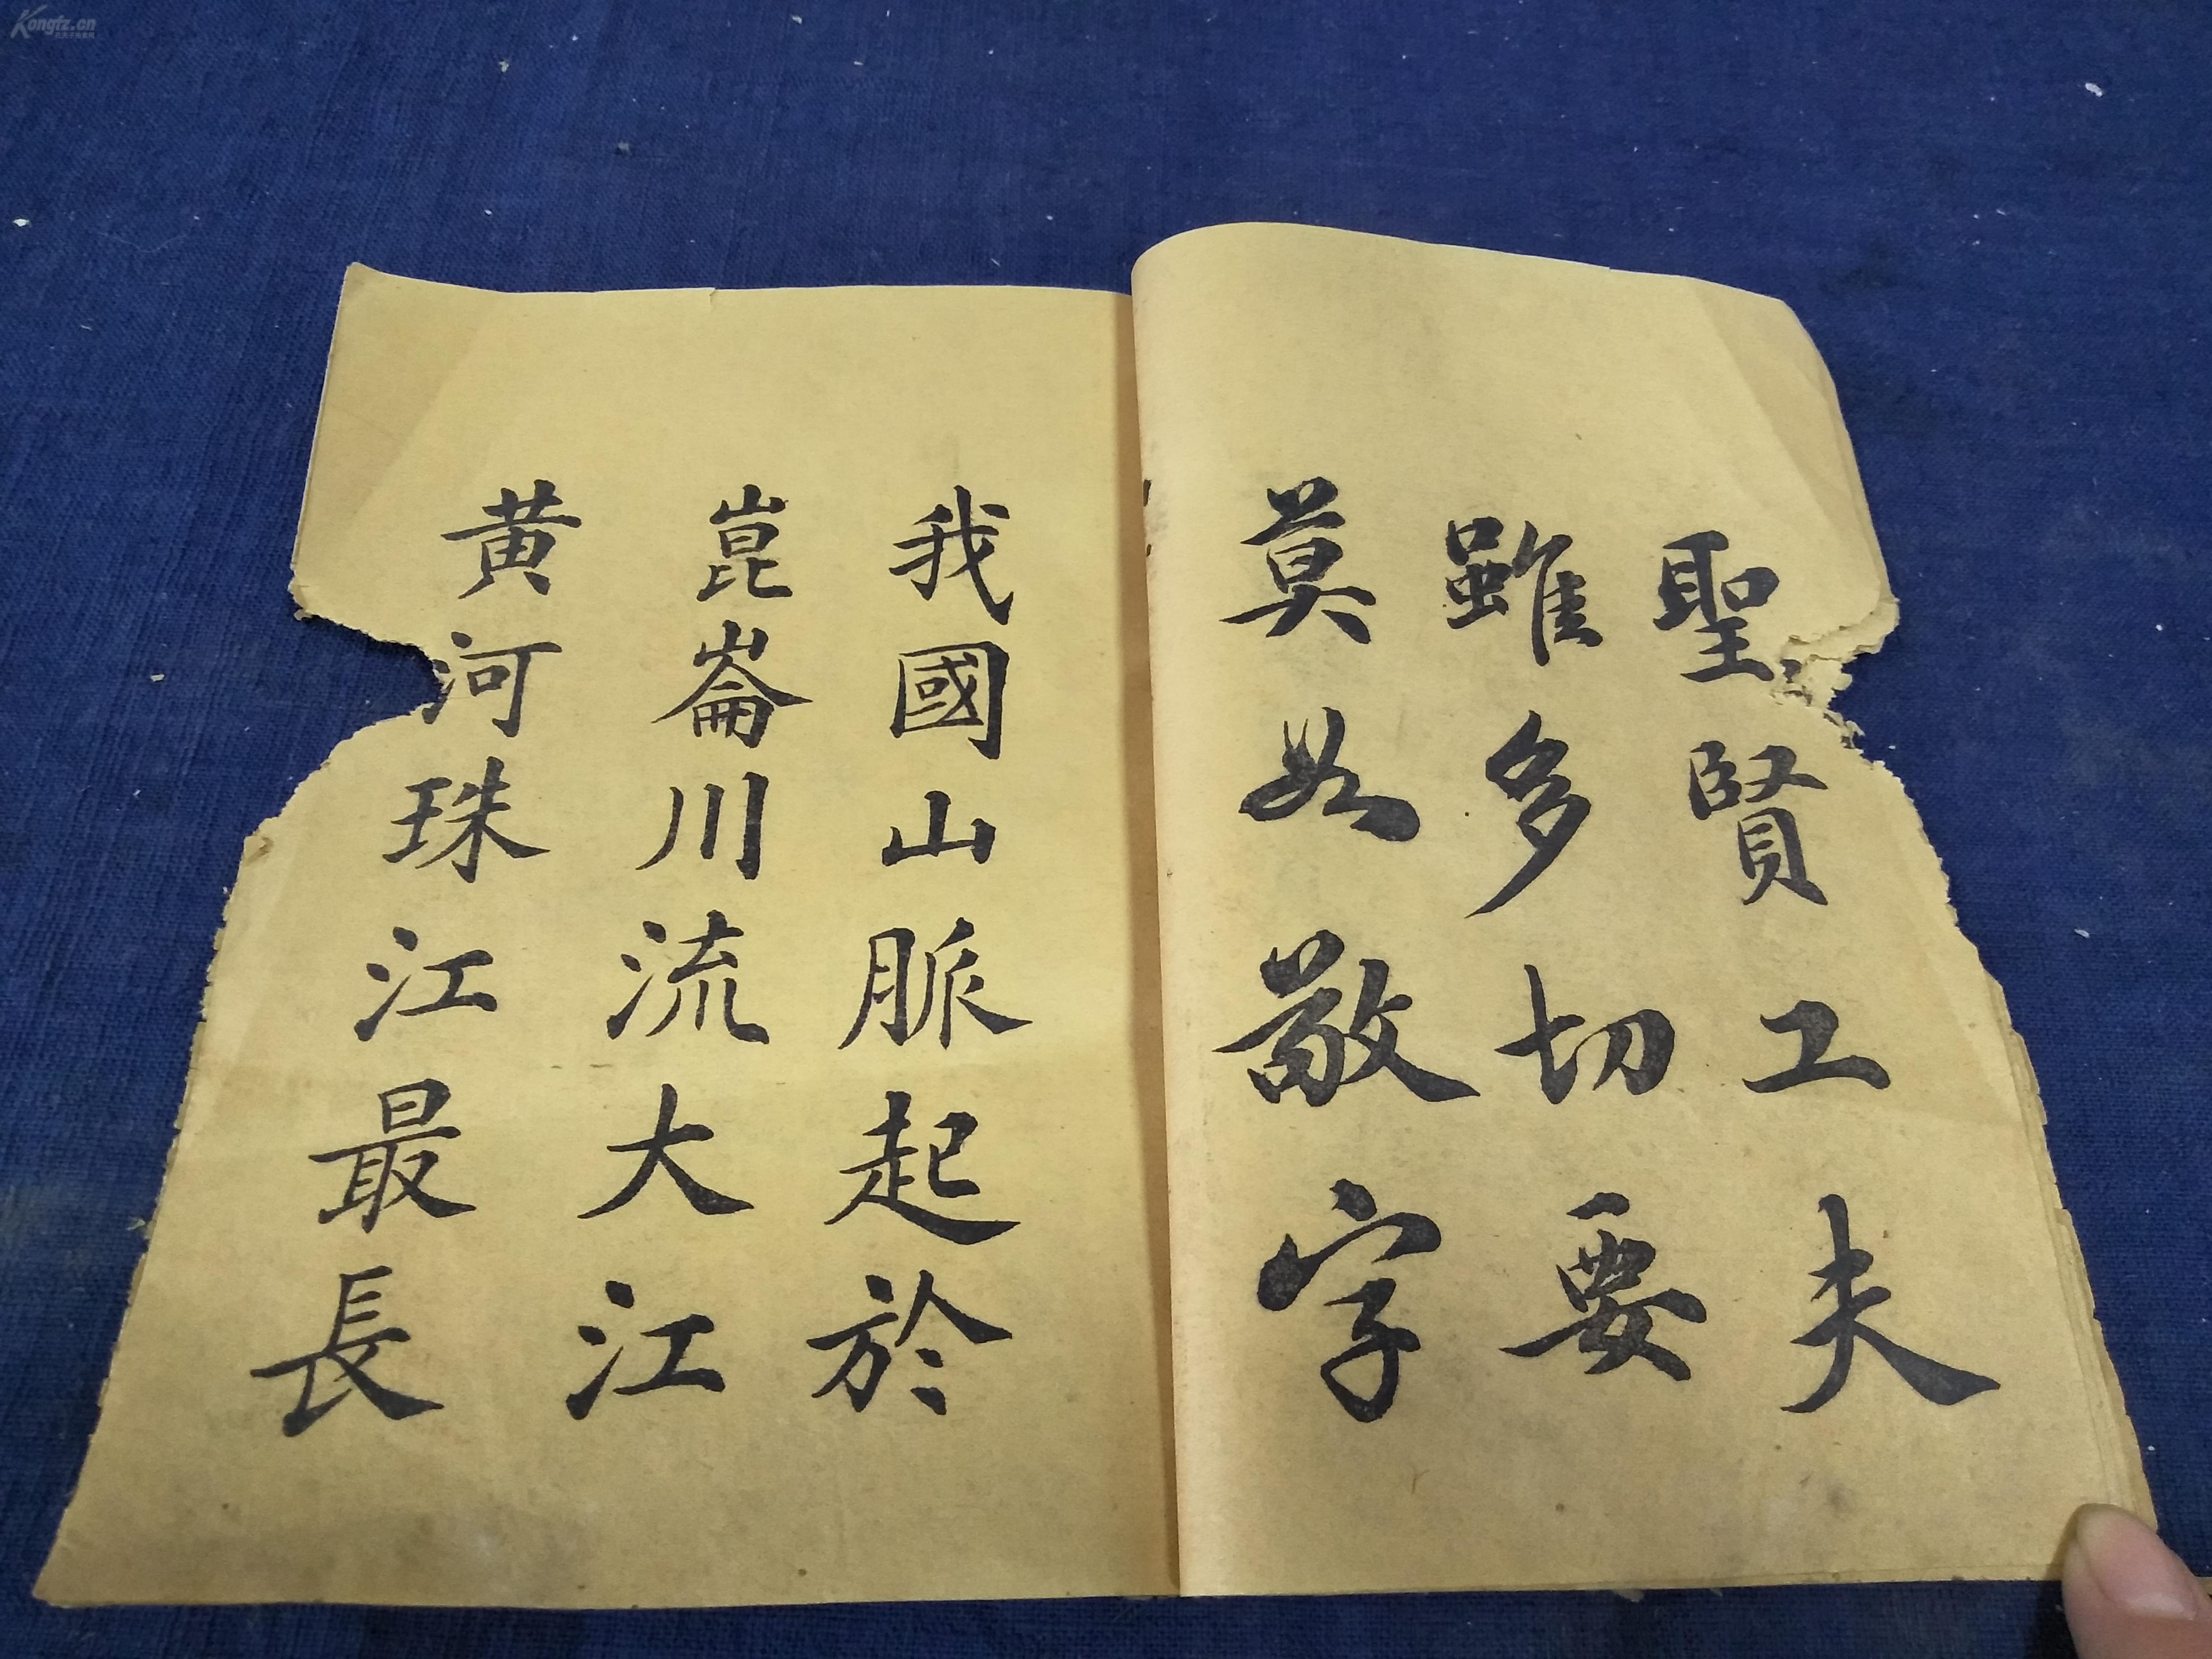 聖賢工夫
雖多切要
莫如敬字
我國山脈起於
崑崙川流大江
黄河珠江最長
Kongfz.cn